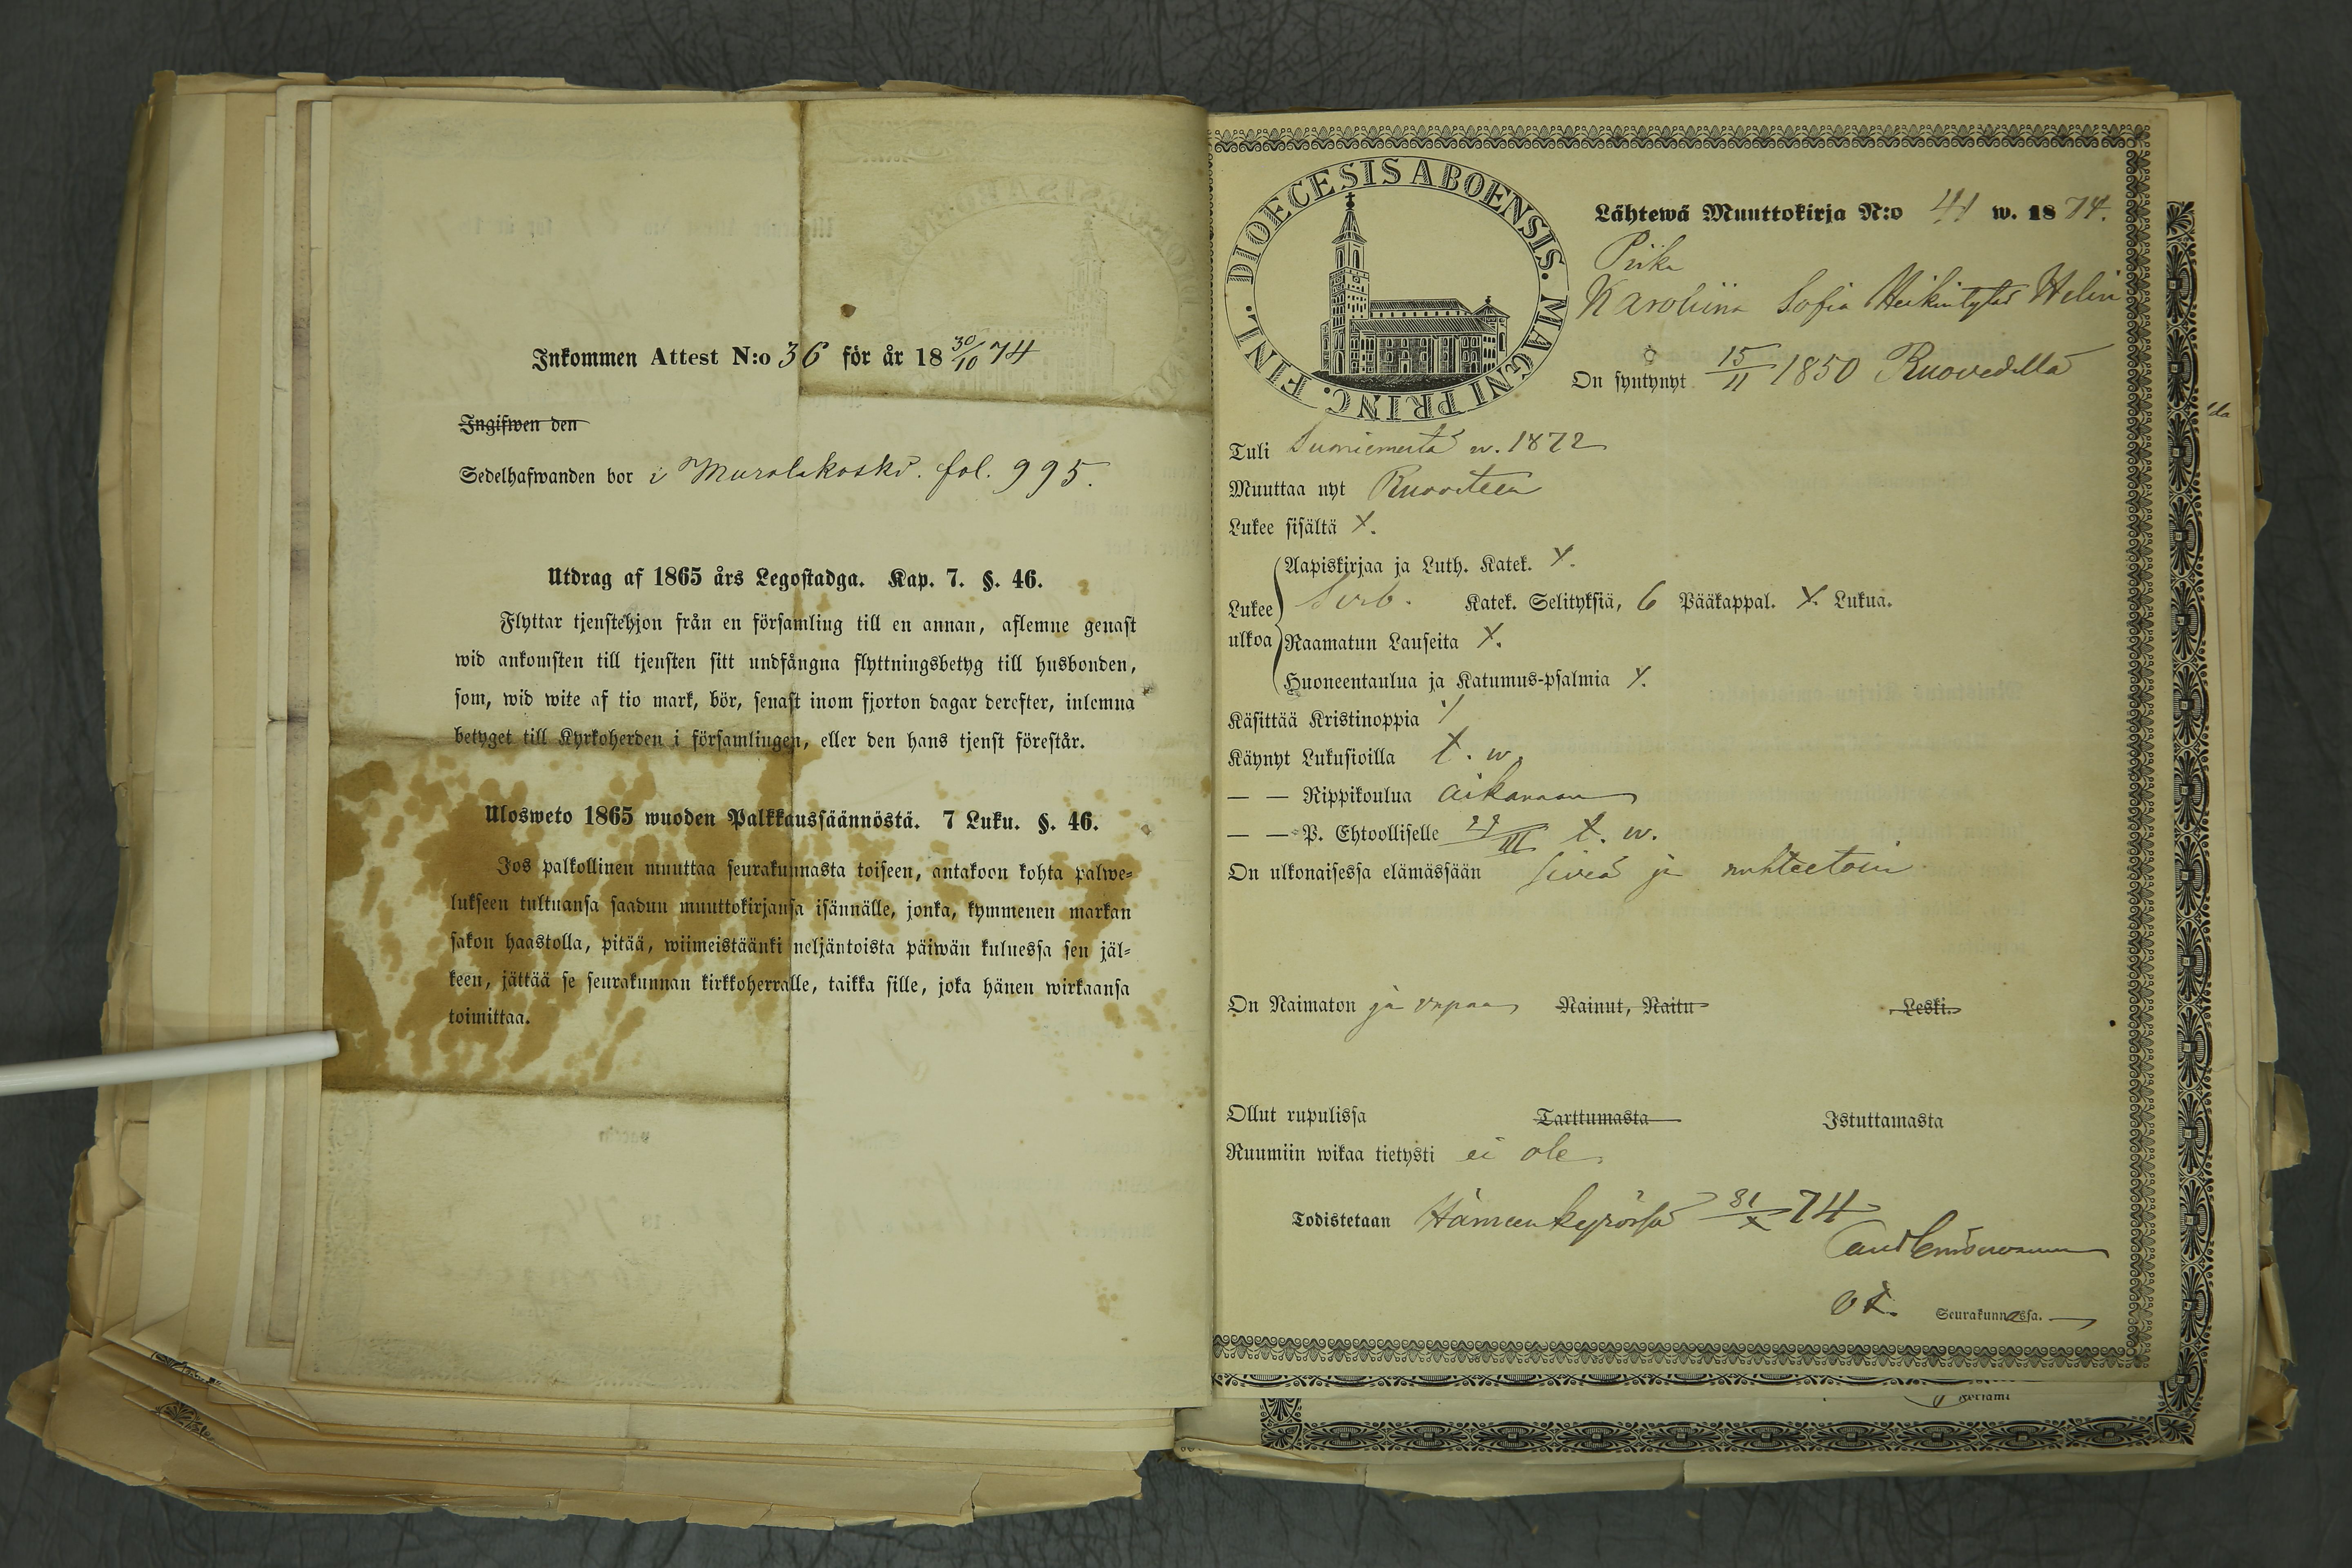 Inkommen Attest N:o 36 för år 18 30/10 74
Ingifwen den
Sedelhafwanden bor i Murolekoski. fol. 995.
Utdrag af 1865 års Legostadga. Kap. 7. §. 46.
Flyttar tjenstehjon från en församling till en annan, aflemne genast
wid ankomsten till tjensten sitt undfångna flyttningsbetyg till husbonden,
som, wid wite af tio mark, bör, senast inom fjorton dagar derefter, inlemna
betyget till Kyrkoherden i församlingen, eller den hans tjenst förestår.
Ulosweto 1865 wuoden Palkkaussäännöstä. 7 Luku. §. 46.
Jos palkollinen muuttaa seurakunnasta toiseen, antakoon kohta palwe-
lukseen tultuansa saadun muuttokirjansa isännälle, jonka, kymmenen markan
sakon haastolla, pitää, wiimeistäänki neljäntoista päiwän kuluessa sen jäl-
keen, jättää se seurakunnan kirkkoherralle, taikka sille, joka hänen wirkaansa
toimittaa.
DIOECESIS ABOENSIS. MAGNI PRINC. FINL.
Lähtewä Muuttokirja N:o 41 w. 18 74.
Piika
Karoliina Sofia Heikintytär Helin
On syntynyt 15/11 1850 Ruovedellä
Tuli Suoniemeltä w. 1872
Muuttaa nyt Ruoveteen
Lukee sisältä X.
Aapiskirjaa ja Luth. Katek. X.
Lukee Katek. Selityksiä, 6 Pääkappal. X. Lukua.
ulkoa Raamatun Lauseita X.
Huoneentaulua ja Katumus-psalmia X.
Käsittää Kristinoppia
Käynyt Lukusioilla t. w.
— — Rippikoulua aikanaan
— — P. Ehtoolliselle 29/III t. w.
On ulkonaisessa elämässään siveä ja nuhteetoin
On Naimaton ja vapaa Nainut, Naitu Leski.
Ollut rupulissa Tarttumasta Istuttamasta
Ruumiin wikaa tietysti ei ole
Todistetaan Hämeenkyrössä 31/X 74
Seurakunnassa.